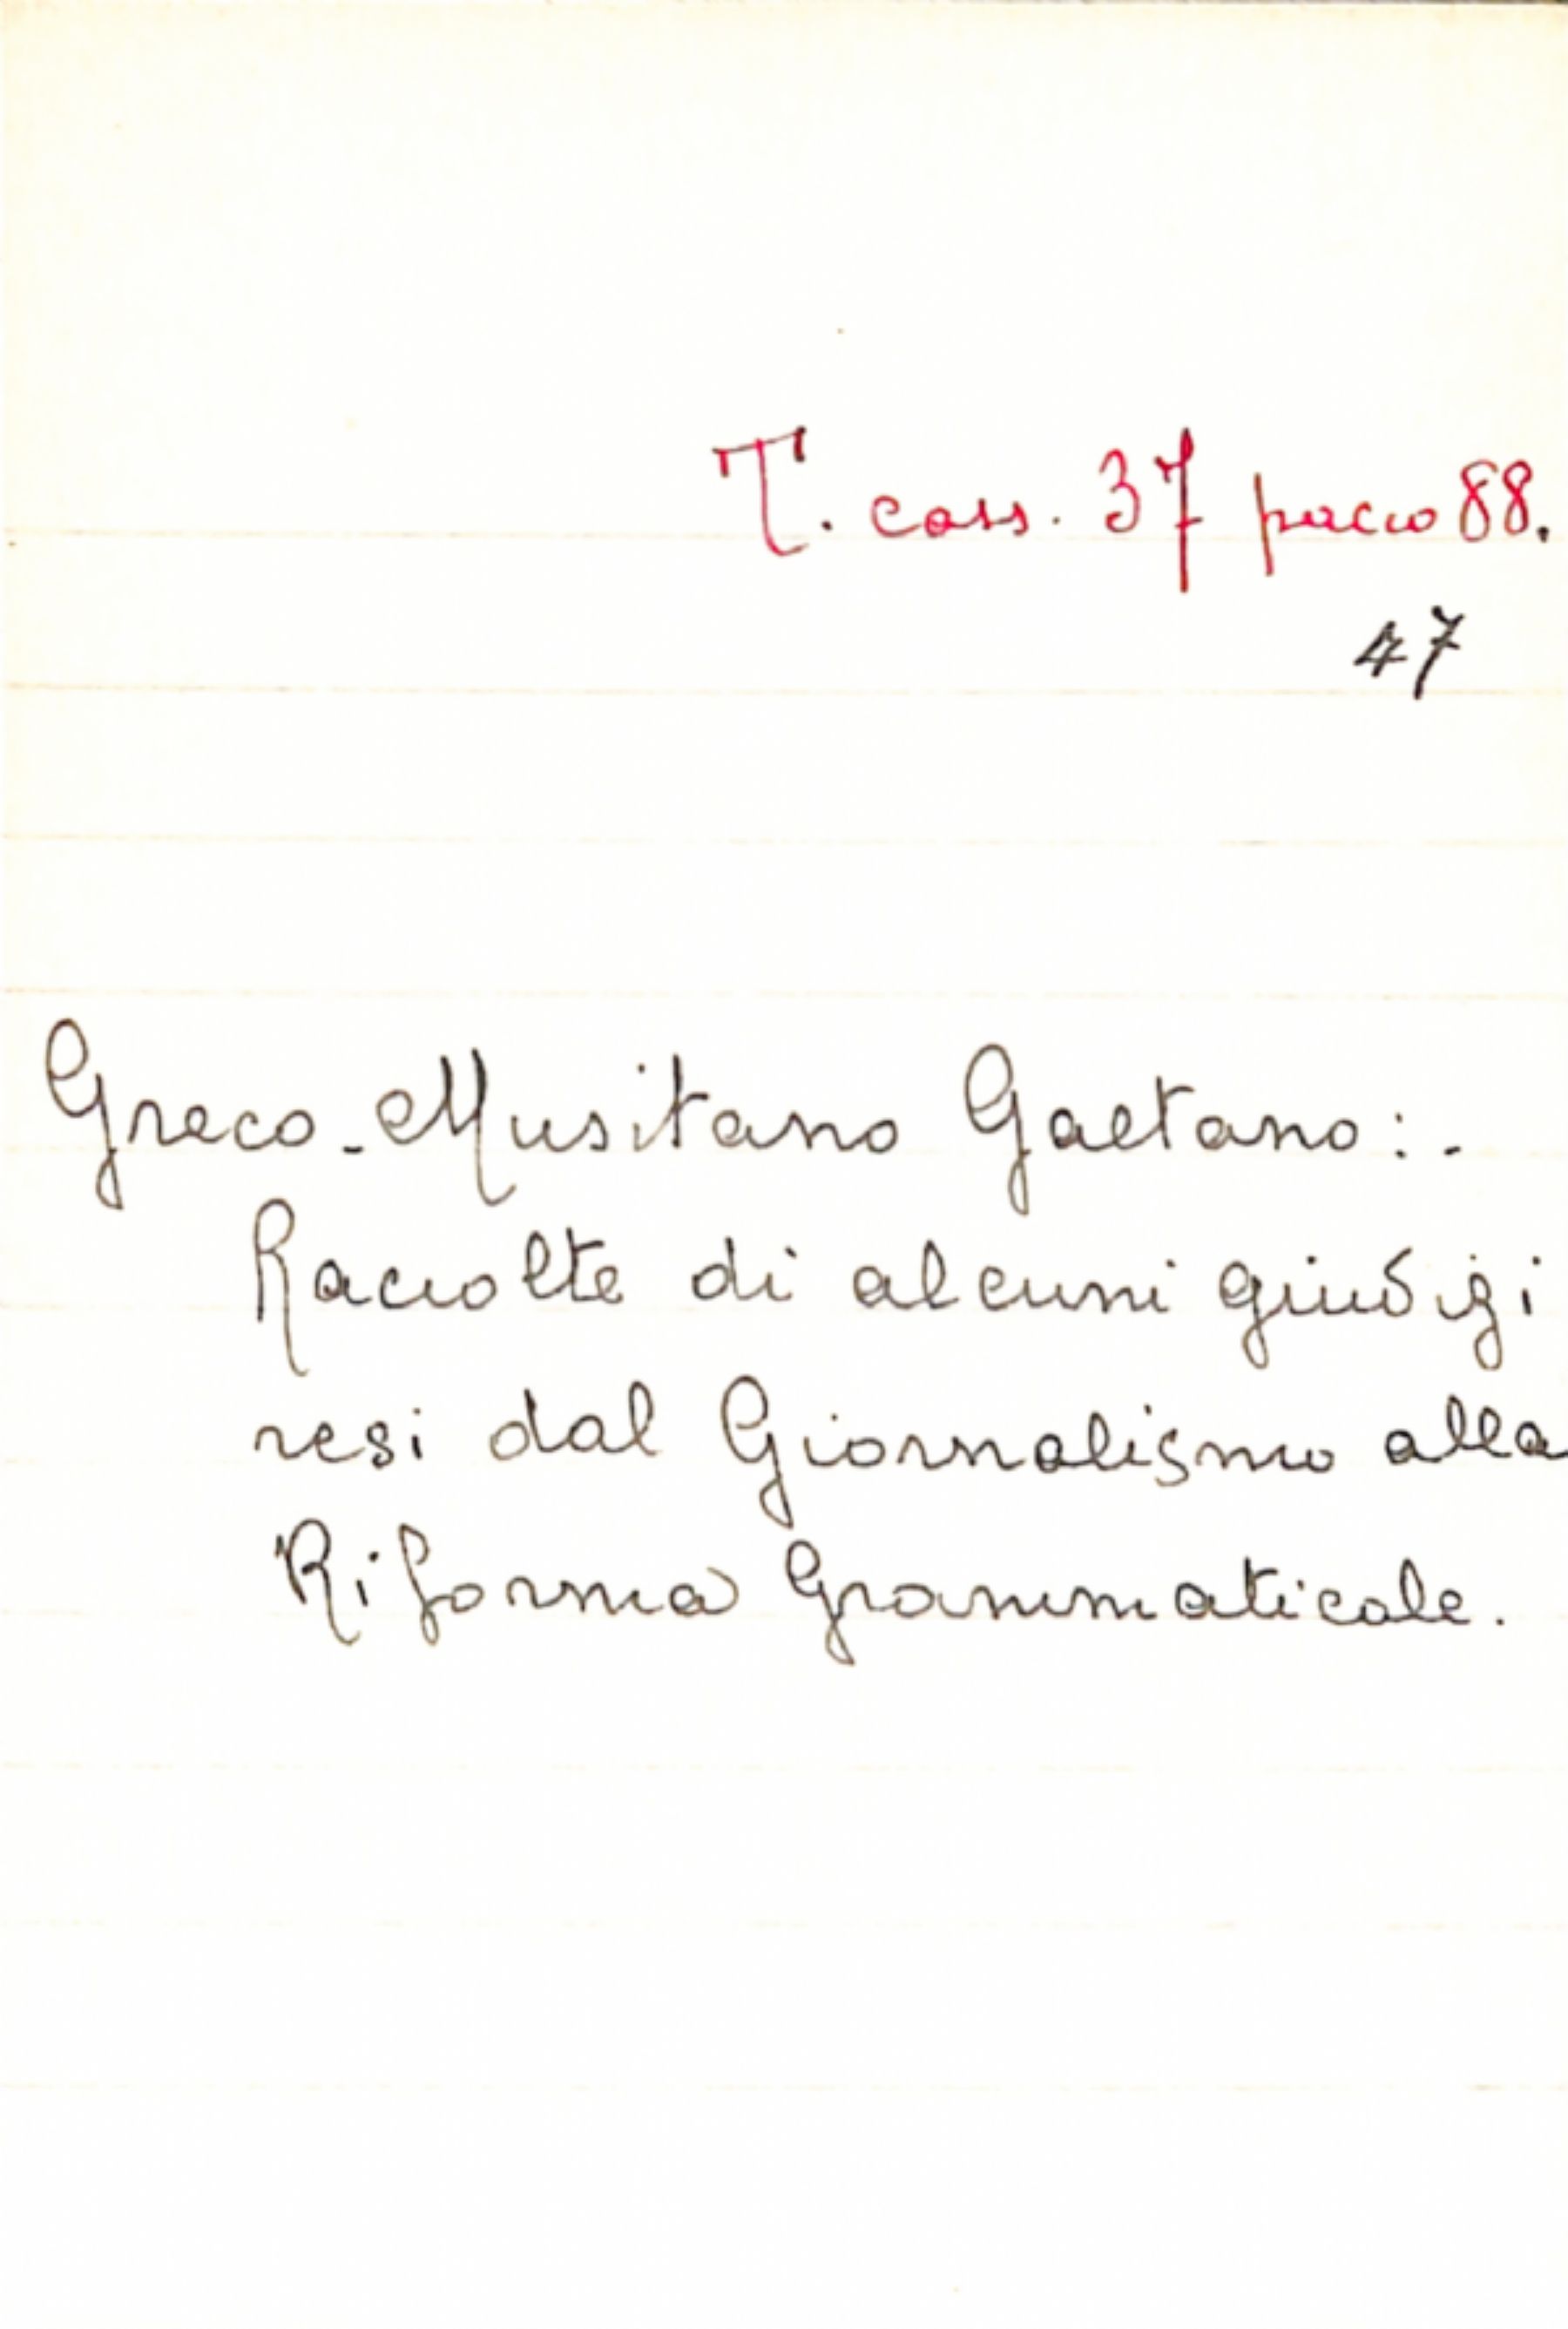 T. cass. 37 pacco 88.
47
Greco-Musitano Gaetano:-
Raccolte di alcuni giudizi
resi dal Giornalismo alla
Riforma Grammaticale.